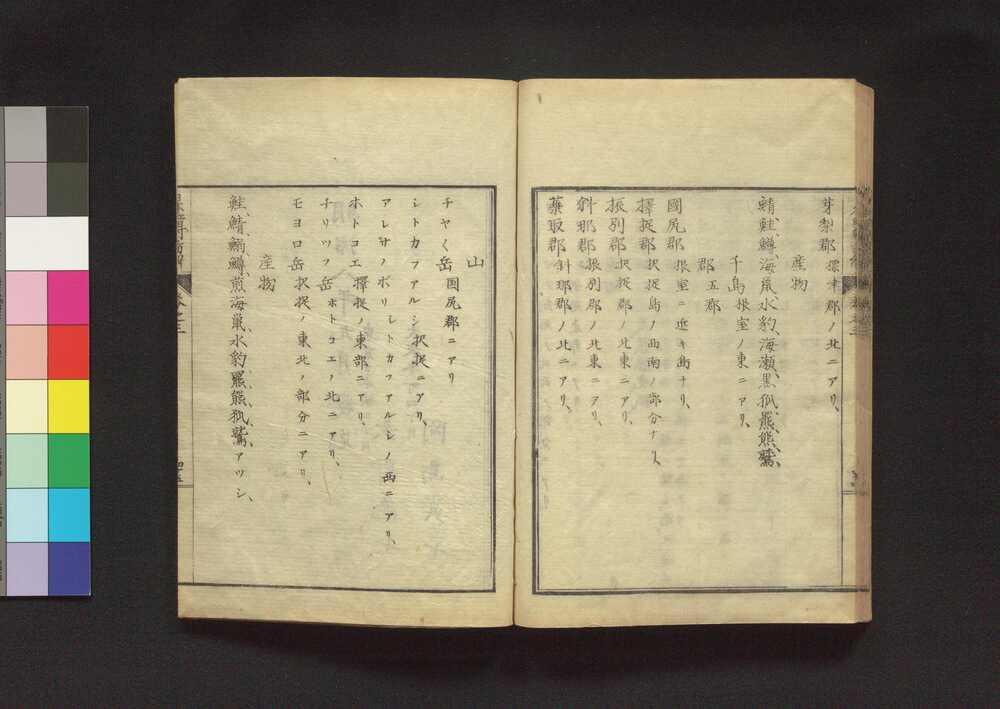 芽梨郡標津郡ノ北ニアリ、
産物
鯖鮭鱒、海鼠水豹、海瀬黒狐羆熊、鷲、
千島根室ノ東ニアリ、
郡五郡
國尻郡根室ニ近キ島ナリ、
擇捉郡択捉島ノ西南ノ部分ナリ、
振別郡択捉郡ノ北東ニアリ、
斜那郡振別郡ノ北東ニアリ、
蘂取郡斜那郡ノ北ニアリ、
山
チヤ〱岳国尻郡ニアリ
シトカフアルシ択捉ニアリ、
アレサノボリレトカフアルシノ西ニアリ、
ホトコエ擇捉ノ東部ニアリ、
チリツフ岳ホトコエノ北ニアリ、
モヨロ岳択捉ノ東北ノ部分ニアリ、
産物
鮭鯖鱒、煎海鼠水豹羆熊狐、鷲、アツシ、